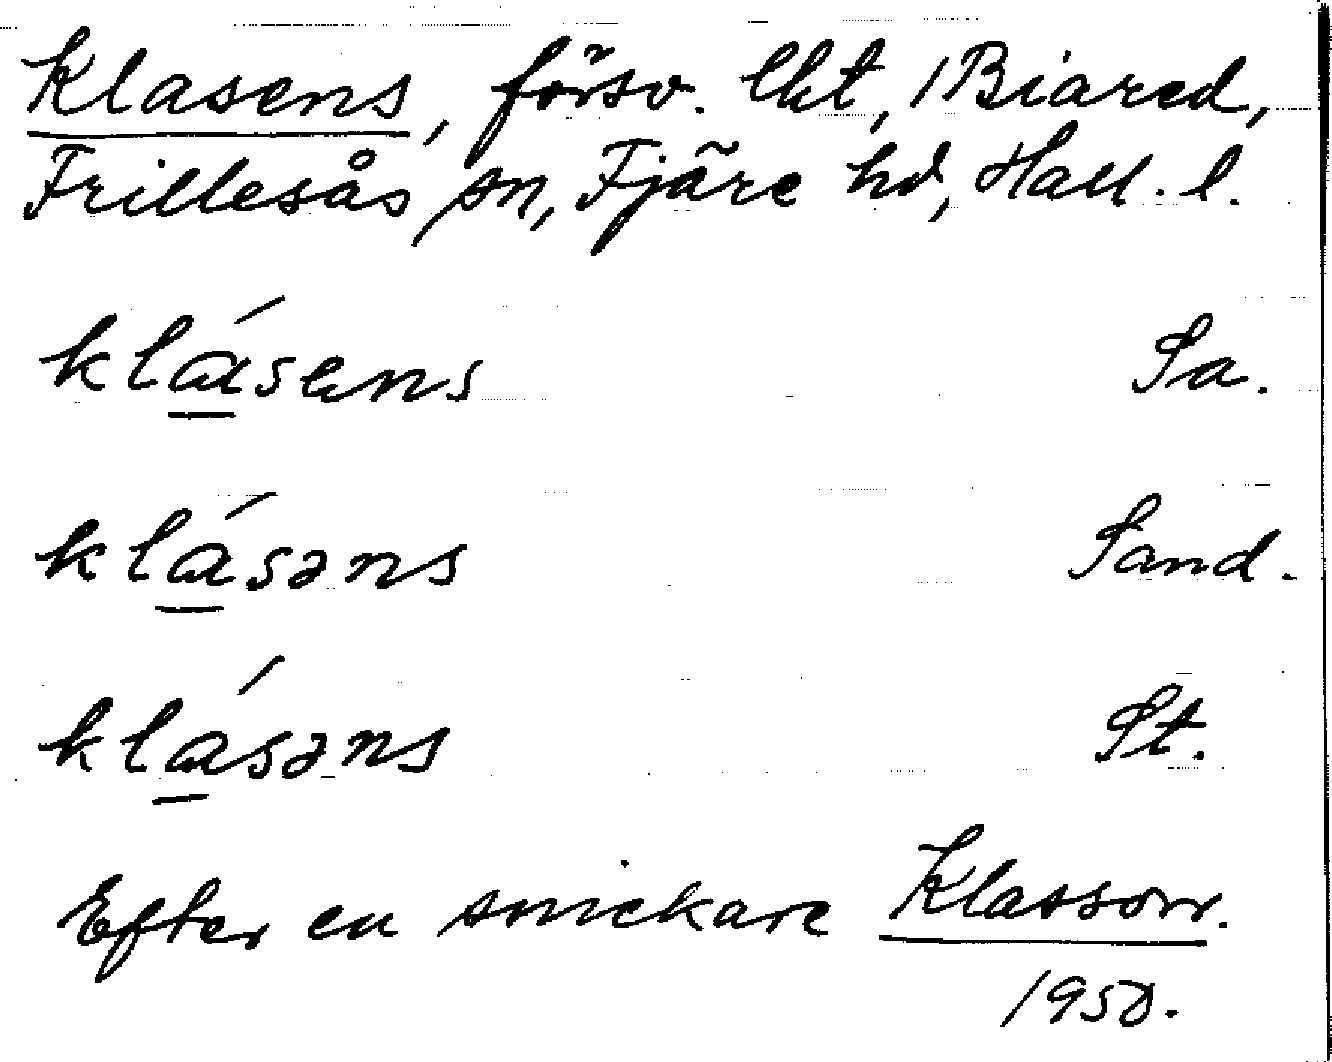 Klasens, försv. lht, 1 Biared,
Frillesås sn, Fjäre hd, Hall. l.
klásens Sa.
klásəns Sand.
klásəns St.
Efter en snickare Klasson.
1950.